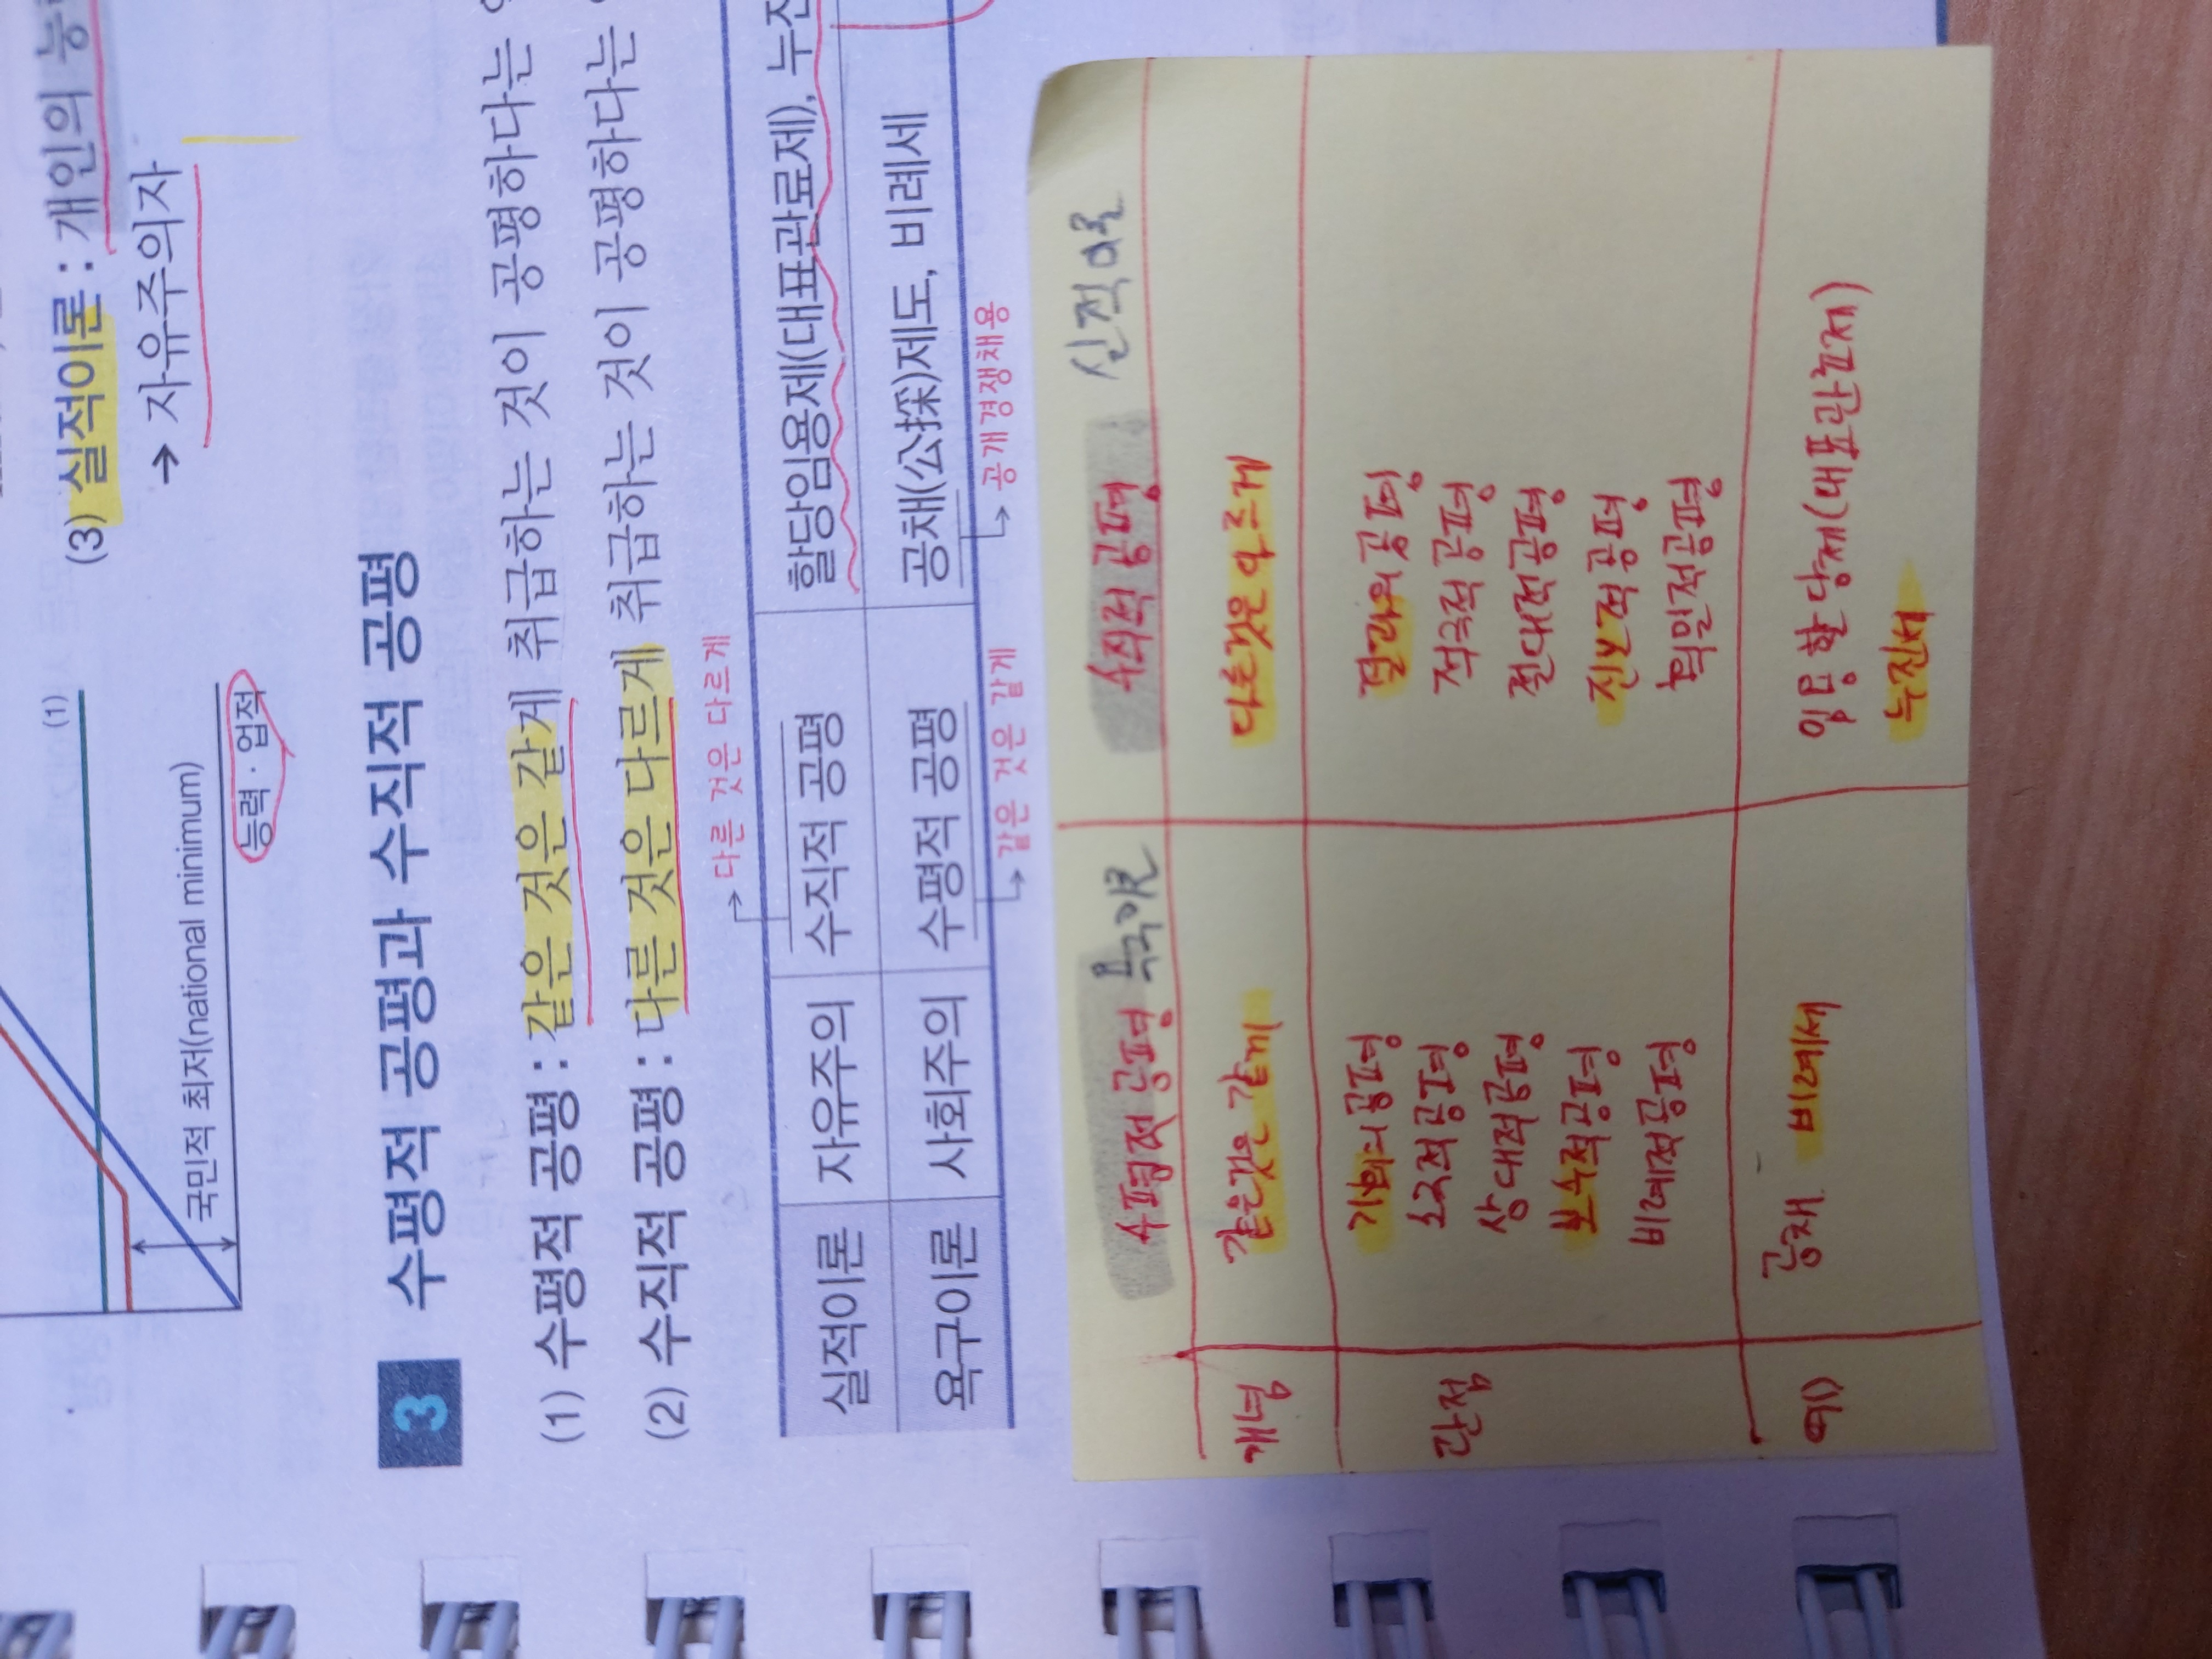 (3) 실적이론 : 개인의 능
→ 자유주의자
(1)
국민적 최저(national minimum)
능력 · 업적
3 수평적 공평과 수직적 공평
(1) 수평적 공평 : 같은 것은 같게 취급하는 것이 공평하다는
(2) 수직적 공평 : 다른 것은 다르게 취급하는 것이 공평하다는
→ 다른 것은 다르게
실적이론 자유주의 수직적 공평 할당임용제(대표관료제), 누진
욕구이론 사회주의 수평적 공평 공채(公採)제도, 비례세
→ 같은 것은 같게 → 공개경쟁채용
수평적 공평 수직적 공평
개념 같은것은 같게 다른것은 다르게
관점 기회의 공평 결과의 공평
소극적 공평 적극적 공평
상대적 공평 절대적 공평
보수적 공평 진보적 공평
비례적 공평 획일적 공평
예) 공채 비례세 임용할당제(대표관료제)
누진세